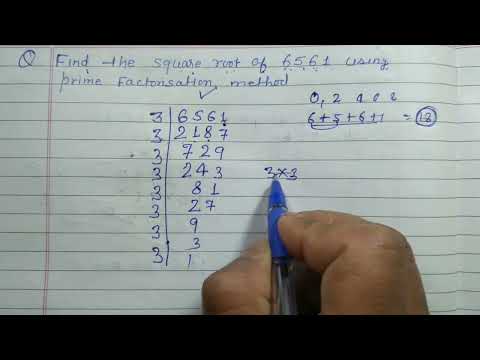 Q Find the square root of 6561 using
prime Factorisation method
0, 2
6+5+6+1 = 18
3 6561
3 2187
3 729
3 243 3×3
3 81
3 27
3 9
3 3
1